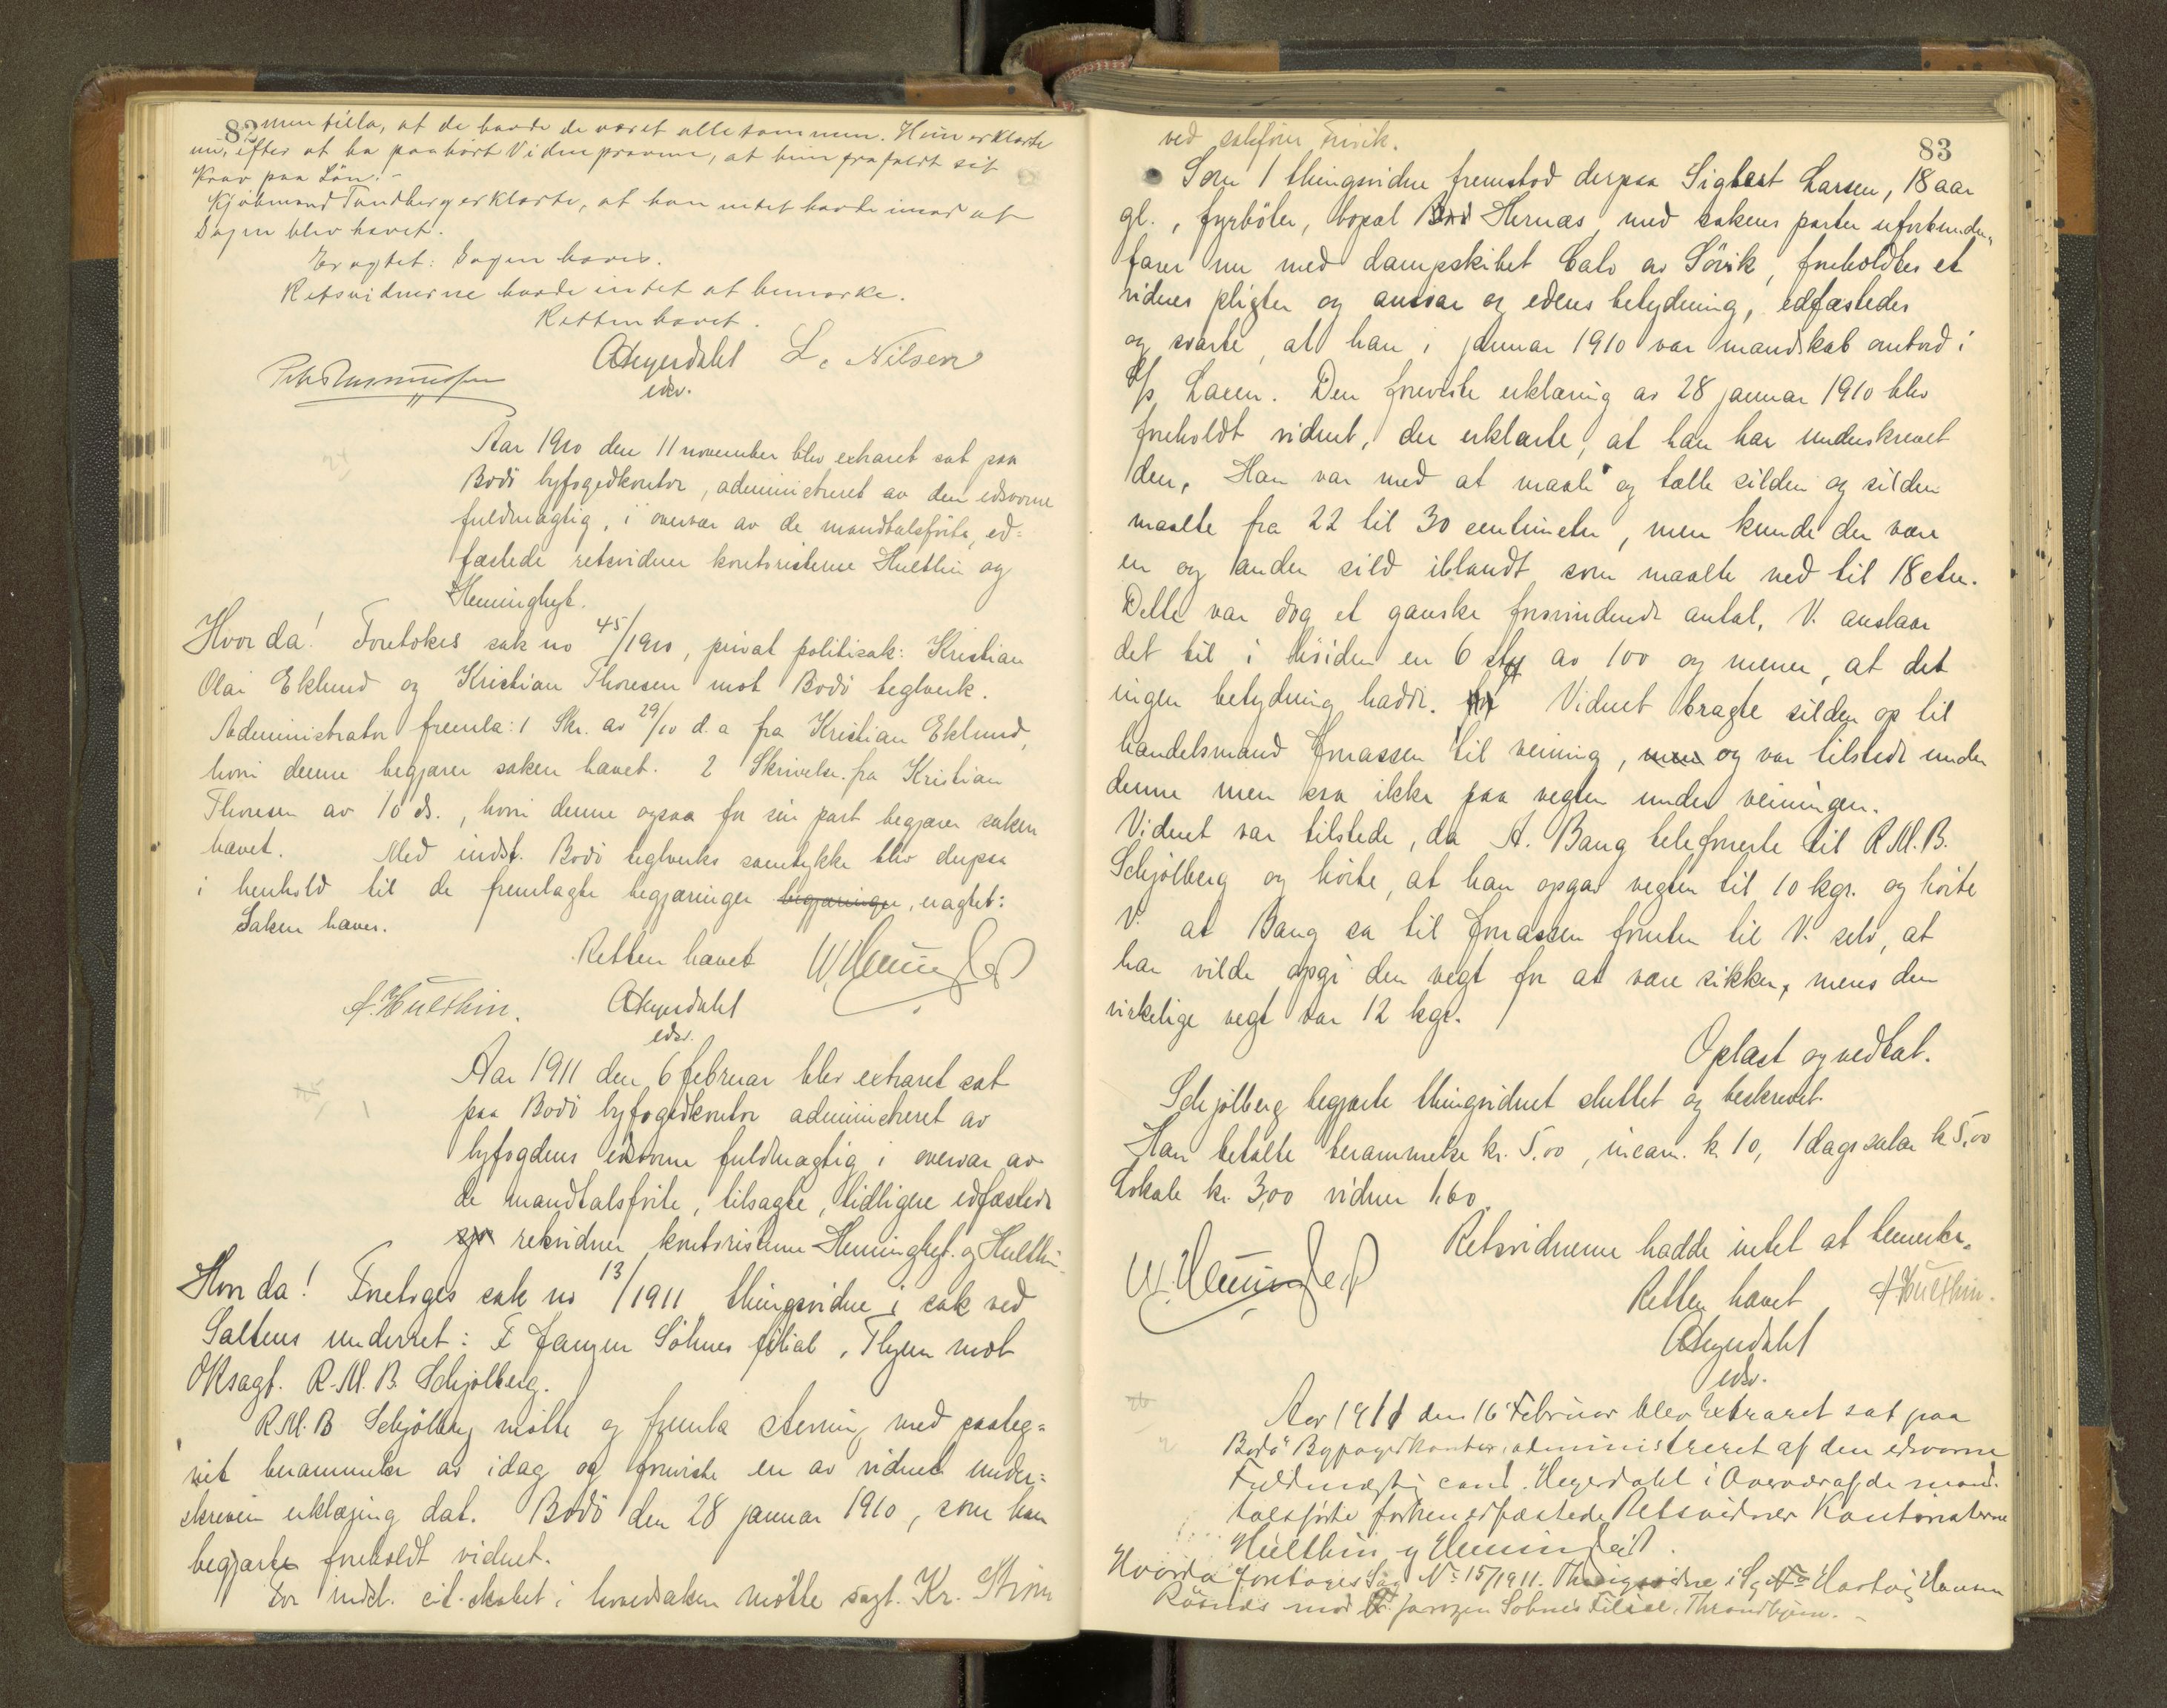 82
men tilla, at de havde de været allesammen. Hun erklærte
nu, efter at ha paahørt Vidneprovene, at hun frafaldt sit
Krav paa Løn.-
Kjøbmand Tandberg erklærte, at han intet havde imod at
Sagen blev hævet.
Eragtet: Sagen hæves.
Retsvidnerne havde intet at bemærke.
Retten hævet.
AHegerdahl L. Nilsen
edsv.
Aar 1910 den 11 november blev extraret sat paa
Bodø byfogedkontor, administreret av den edsvorne
fuldmægtig, i overvær av de mandtalsførte, ed-
fæstede retsvidner kontoristerne Hulthin og
Heminghyt.
Hvor da! Foretokes sak no 45/1910, privat politisak: Kristian
Olai Eklund og Kristian Thoresen mot Bodø teglverk.
Administrator fremla: 1 Skr. av 29/10 d. a fra Kristian Eklund,
hvori denne begjærer saken hævet. 2 Skrivelse fra Kristian
Thoresen av 10 ds., hvori denne ogsaa for sin part begjærer saken
hævet. Med indst. Bodø teglverks samtykke blev derpaa
i henhold til de fremlagte begjæringer begjæringer, eragtet:
Saken hæves.
Retten hævet
A. Hulthin. AHegerdahl
edsv.
Aar 1911 den 6 februar blev extraret sat
paa Bodø byfogedkontor administreret av
byfogdens edsvorne fuldmægtig i overvær av
de mandtalsførte, tilsagte, tidligere edfæstede
retsvidner kontoristerne Heminghyt. og Hulthin.
Hvor da! Foretoges sak no 13/1911 thingsvidne i sak ved
Saltens underret: F Janzen Söhnes filial, Thjem mot
OKsagf. R. M. B. Schjølberg.
R.M.B Schjølberg møtte og fremla stevning med paateg-
net berammelse av idag og foreviste en av vidnet under-
skreven erklæring dat. Bodø den 28 januar 1910, som han
begjærte foreholdt vidnet.
For indst. cit.skabet i hovedsaken møtte sagf. Kr.
83
ved sakfører
Som 1 thingsvidne fremstod derpaa Sigbart Larsen, 18 aar
gl., fyrbøter, bopæl Bod Hernæs med sakens parter uforbunden,
farer nu med dampskibet Calo av Sørvik, foreholdtes et
vidnes pligter og ansvar og edens betydning, edfæstedes
og svarte, at han i januar 1910 var mandskab ombord i
S/s Laxen. Den foreviste erklæring av 28 januar 1910 blev
foreholdt vidnet, der erklærte, at han har underskrevet
den. Han var med at maale og tælle silden og silden
maalte fra 22 til 30 centimeter, men kunde der være
en og anden sild iblandt som maalte ned til 18 ctm.
Dette var dog et ganske forsvindende antal. V. anslaar
det til i høiden en 6 stk av 100 og mener, at det
ingen betydning hadde. Vidnet bragte silden op til
handelsmand Jonassen til veining, men og var tilstede under
denne men saa ikke paa vegten under veiningen.
Vidnet var tilstede, da A. Bang telefonerte til R.M.B.
Schjølberg og hørte, at han opgav vegten til 10 kgr. og hørte
V. at Bang sa til Jonassen foruten til V. selv, at
han vilde opgi den vegt for at være sikker, mens den
virkelige vegt var 12 kgr.
Oplæst og vedtat.
Schjølberg begjærte thingsvidnet sluttet og beskrevet.
Han betalte berammelse kr. 5,00, incam. kr 10, 1 dags salær kr 5,00
Lokale kr. 3,00 vidner 1,60.
Retsvidnerne hadde intet at bemerke.
Retten hævet A. Hulthin.
AHegerdahl
edsv.
Aar 1911 den 16 Februar blev Extraret sat paa
Bodø Byfogedkontor, administreret af den edsvorne
Fuldmægtig cand. Hegerdahl i Overvær af de mand-
talsførte forhen edfæstede Retsvidner Kontoristerne
Hulthin og
Hvorda foretoges Sag No 15/1911. Thingsvidne i Sg. Hartvig Hansen
Røsnes mod F. Janzen Sohnes Filial, Throndhjem.-